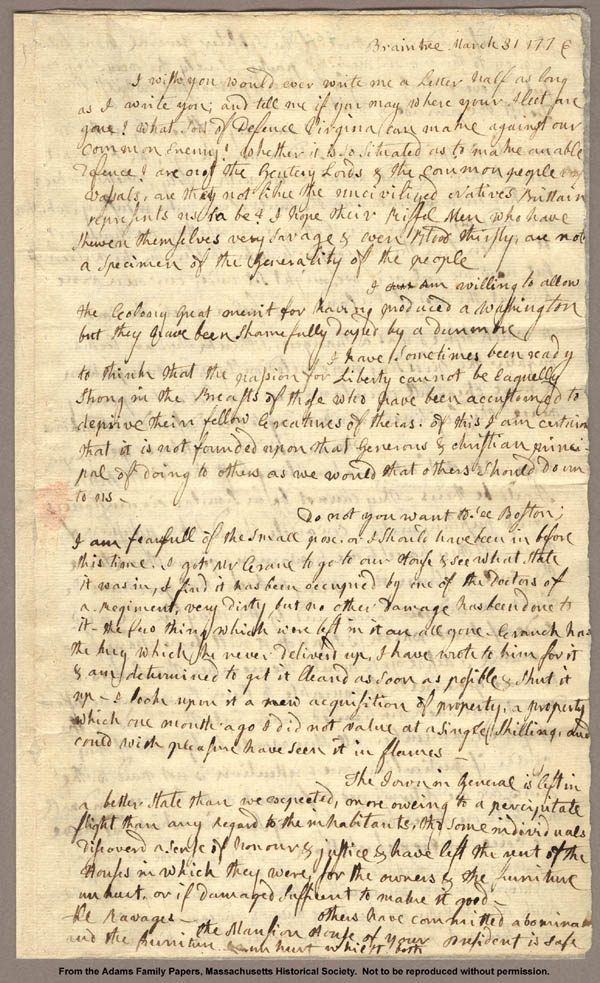 Braintree March 31 1776
I wish you would ever write me a Letter half as long
as I write you; and tell me if you may where your Fleet are
gone? What sort of Defence Virginia can make against our
common Enemy? Whether it is so situated as to make an able
Defence? are not the Gentery Lords & the common people
vassals, are they not like the uncivilized Natives Brittain
represents us to be? I hope their Riffel Men who have
shewen themselves very savage & even Blood thirsty; are not
a specimen of the Generality of the people
I am willing to allow
the Colony great merrit for having produced a Washington
but they have been shamefully duped by a Dunmore
I have sometimes been ready
to think that the passion for Liberty cannot be Eaquelly
Strong in the Breasts of those who have been accustomed to
deprive their fellow Creatures of theirs. Of this I am certain
that it is not founded upon that generous & christian princi-
pal of doing to others as we would that others should do un
to us –
Do not you want to see Boston;
I am fearfull of the small pox, or I should have been in before
this time. I got Mr Crane to go to our House & see what state
it was in, I find it has been occupied by one of the Doctors of
a Regiment, very dirty but no other Damage has been done to
it – the few things which were left in it are all gone – Cranch has
the key which he never deliverd up, I have wrote to him for it
& am determined to get it cleand as soon as posible & shut it
up – I look upon it a new acquisition of property, a property
which one month ago I did not value at a single Shilling, and
could with pleasure have seen it in flames –
The Town in General is left in
a better state than we expected, more oweing to a percipitate
flight than any Regard to the inhabitants, tho some individuals
discoverd a sense of honour & justice & have left the rent of the
Houses in which they were, for the owners & the furniture
unhurt, or if damaged sufficent to make it good –
others have committed abomina
ble Ravages –
the Mansion House of your President is safe
and the furniture unhurt whilst both
From the Adams Family Papers, Massachusetts Historical Society. Not to be reproduced without permission.